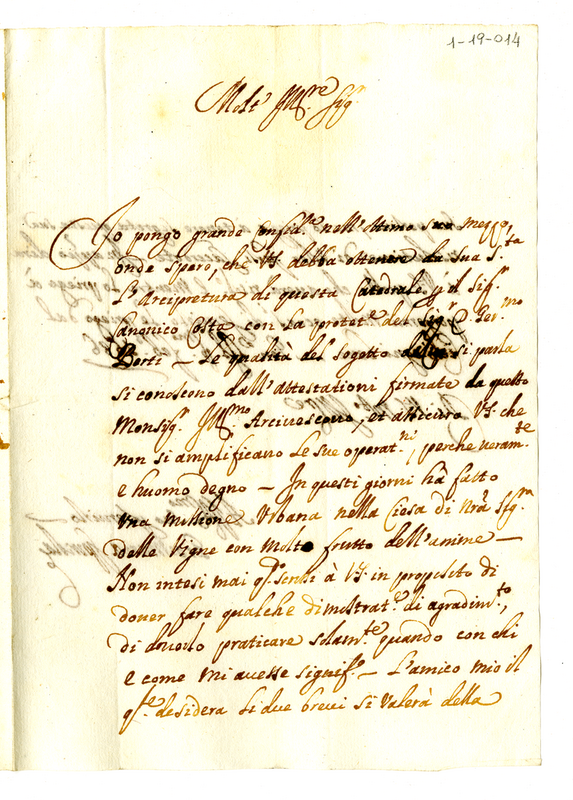 1-19-014
Molt' Ill.re Sig.r
Io pongo grande Confid.a nell'ottimo suo mezzo,
onde spero, che VS. debba ottenere da sua S.ta
L'Arcipretura di questa Catedrale p il Sig.r
Canonico Costa con la protet.e del Sig.r Ger.mo
Borti – Le qualità del sogetto di si parla
si conoscono dall'attestationi firmate da questo
Monsig.r Ill.mo Arcivescovo, et assicuro VS. che
non si amplificano le sue operat.ni, perche veram.te
e huomo degno – In questi giorni hà fatto
Una missione Urbana nella Ciesa di Nrã Sig.ra
delle Vigne con molto frutto dell'anime –
Non intesi mai q.do scrissi à VS. in proposito di
dover fare qualche dimostrat.e di agradim.to,
di doverlo praticare solam.te quando con chi
e come mi avesse signif.o – L'amico mio il
q.le desidera li due brevi si valerà della